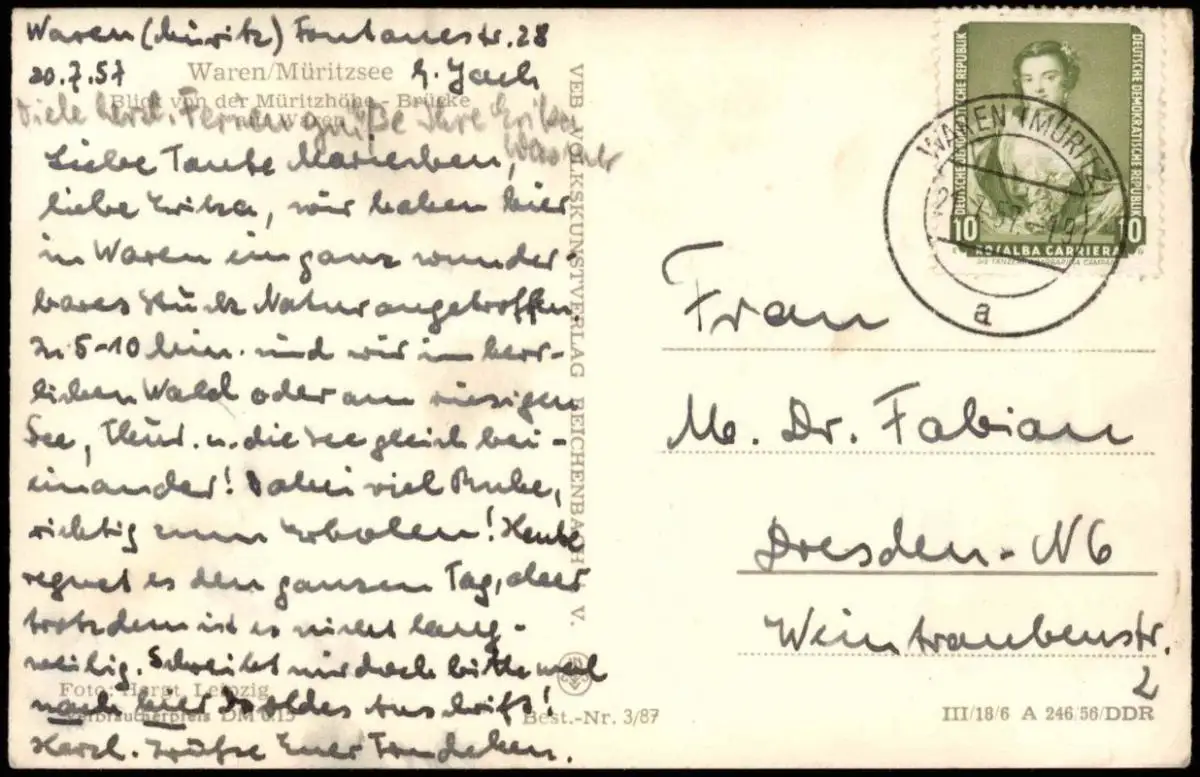 Waren (Müritz) Fontanestr. 28
20.7.57
Waren/Müritzsee
Blick von der Müritzhöhe - Brücke
Viele herzl. Feriengrüße Ihre Erika
Liebe Tante Mariechen,
liebe Erika, wir haben hier
in Waren ein ganz wunder-
bares Stück Natur angetroffen.
In 5-10 Min. sind wir im herr-
lichen Wald oder am riesigen
See, Thür. u. die See gleich bei-
einander! Dabei viel Ruhe,
richtig zum Erholen! Heute
regnet es den ganzen Tag, aber
trotzdem ist es nicht lang-
weilig. Schreibt mir doch bitte mal
nach hier Isoldes Anschrift!
Herzl. Grüße Euer Trudchen.
Foto: Leipzig
Verbraucherpreis DM 0.15
VEB VOLKSKUNSTVERLAG REICHENBACH V.
Best.-Nr. 3/87
DEUTSCHE DEMOKRATISCHE REPUBLIK
DEUTSCHE DEMOKRATISCHE REPUBLIK
10
10
ROSALBA CARRIERA
WAREN (MÜRITZ)
a
Frau
M. Dr. Fabian
Dresden-N6
Weintraubenstr.
2
III/18/6 A 246/56/DDR